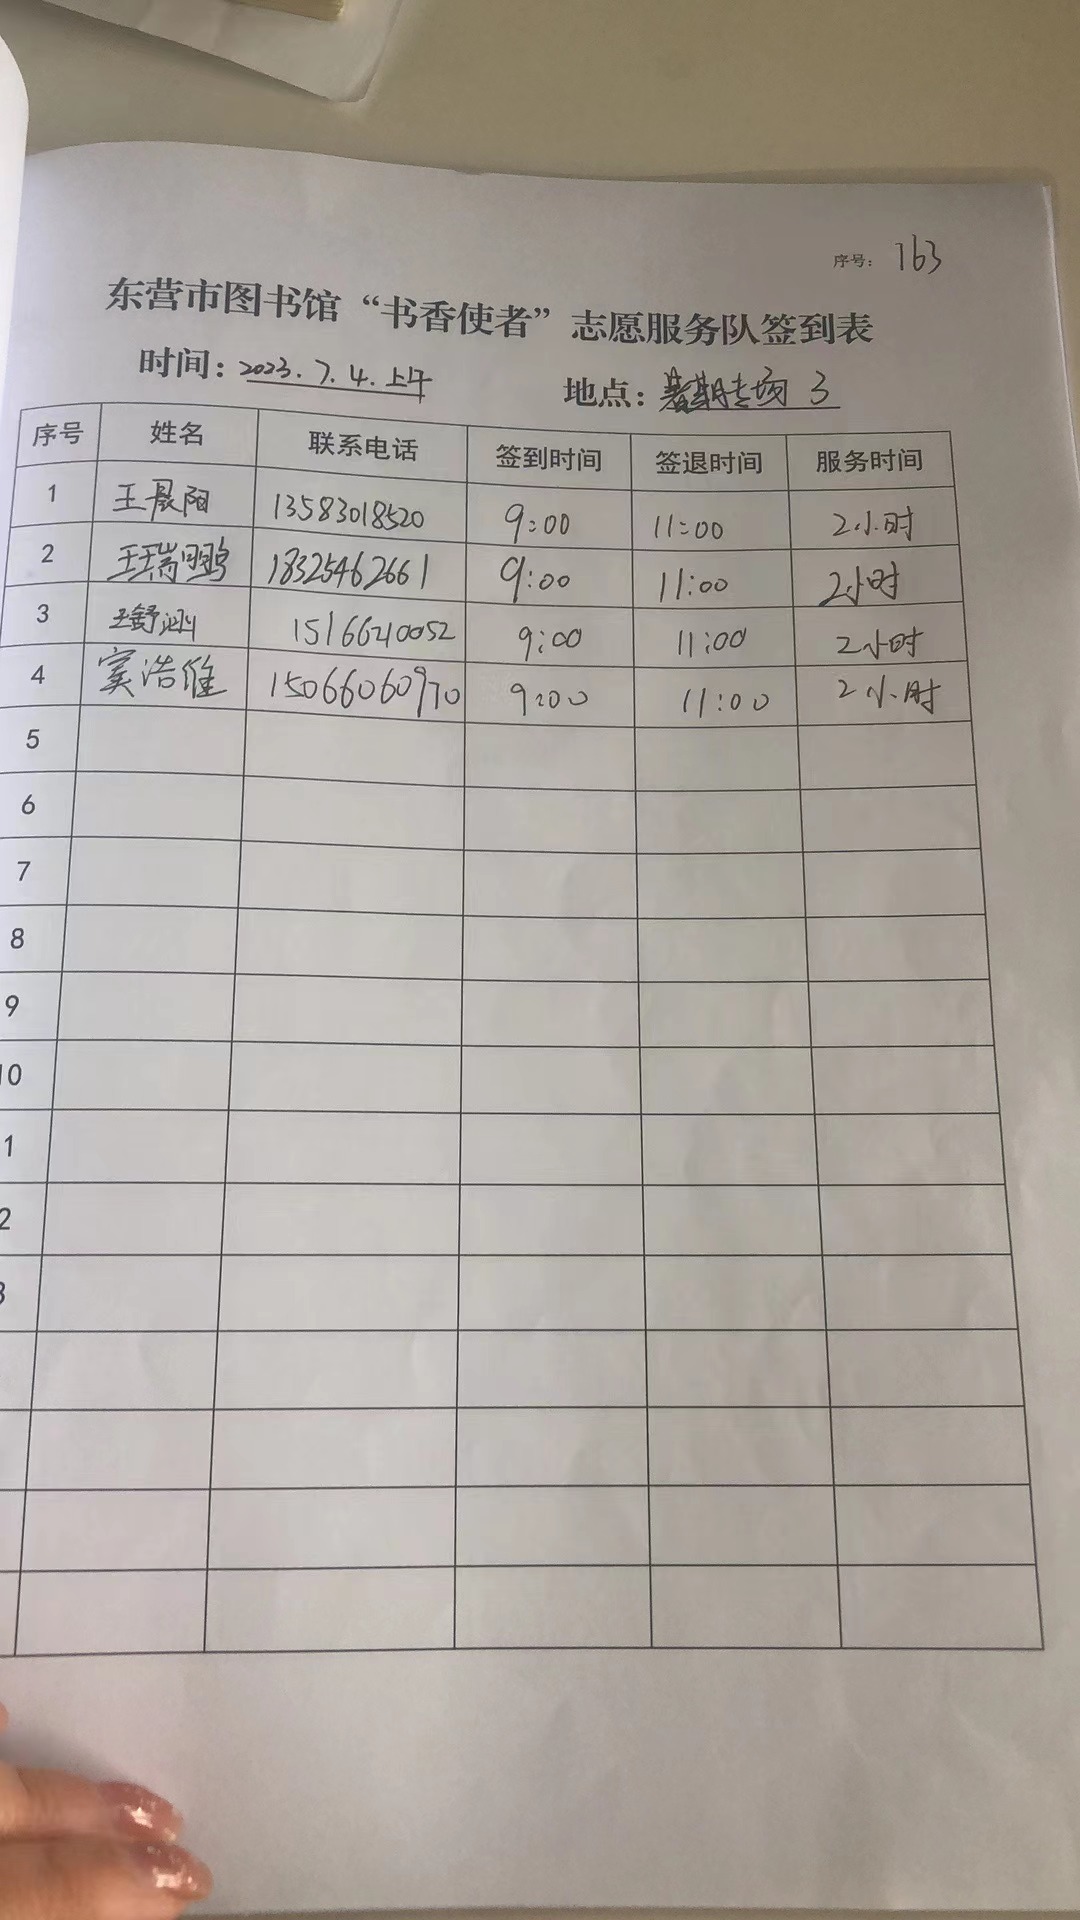 序号: 163
东营市图书馆“书香使者”志愿服务队签到表
时间: 2023.7.4.上午 地点: 暑期专场 3
序号 姓名 联系电话 签到时间 签退时间 服务时间
1 王晨阳 13583018520 9:00 11:00 2小时
2 王瑞鹏 18325462661 9:00 11:00 2小时
3 王舒涵 15166210052 9:00 11:00 2小时
4 窦浩维 15066060970 9:00 11:00 2小时
5
6
7
8
9
10
1
2
3